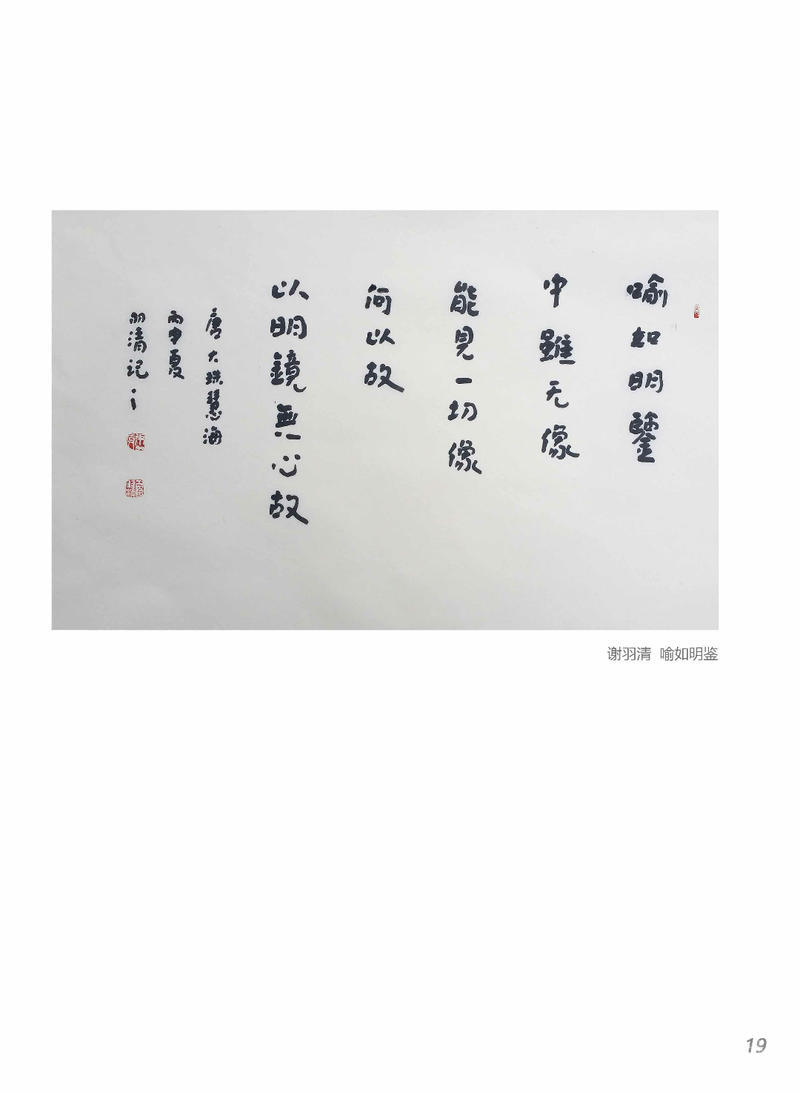 喻如明鑒
中雖无像
能見一切像
何以故
以明鏡無心故
唐大珠慧海
丙申夏
羽清記之
谢羽清 喻如明鉴
19